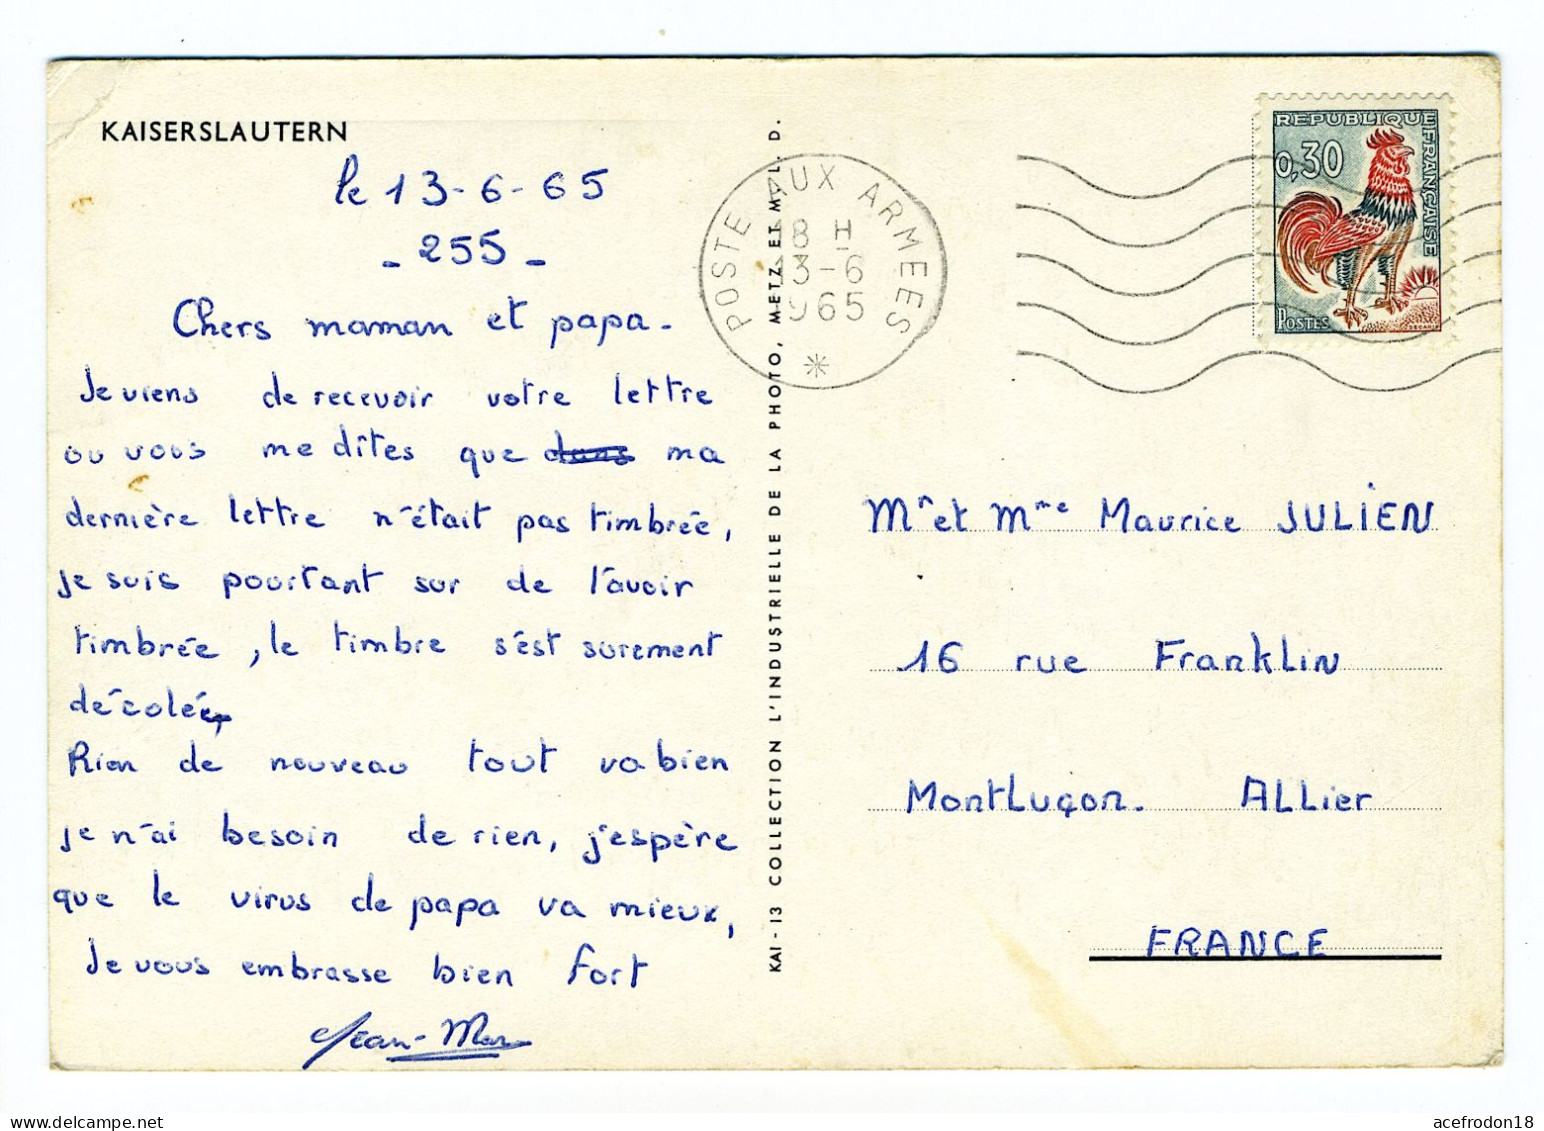 KAISERSLAUTERN
le 13-6-65
- 255 -
Chers maman et papa-
Je viens de recevoir votre lettre
ou vous me dîtes que dans ma
dernière lettre n'était pas timbrée,
je suis pourtant sur de l'avoir
timbrée, le timbre s'est surement
décolée,
Rien de nouveau tout va bien
je n'ai besoin de rien, j'espère
que le virus de papa va mieux,
Je vous embrasse bien fort
Jean-Marc
KAI - 13 COLLECTION L'INDUSTRIELLE DE LA PHOTO, METZ ET M. L. D.
POSTE AUX ARMEES
18 H
13-6
1965
REPUBLIQUE FRANÇAISE
0,30
POSTES
DECARIS
Mr et Mme Maurice JULIEN
16 rue Franklin
Montluçon. ALLier
FRANCE
acefrodon18